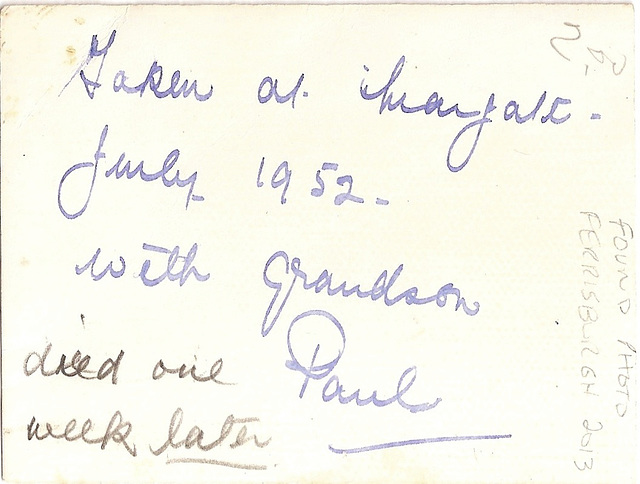 Taken at Margate -
July 1952 -
with Grandson
Paul
died one
week later
FOUND PHOTO
FERRISBURGH 2013